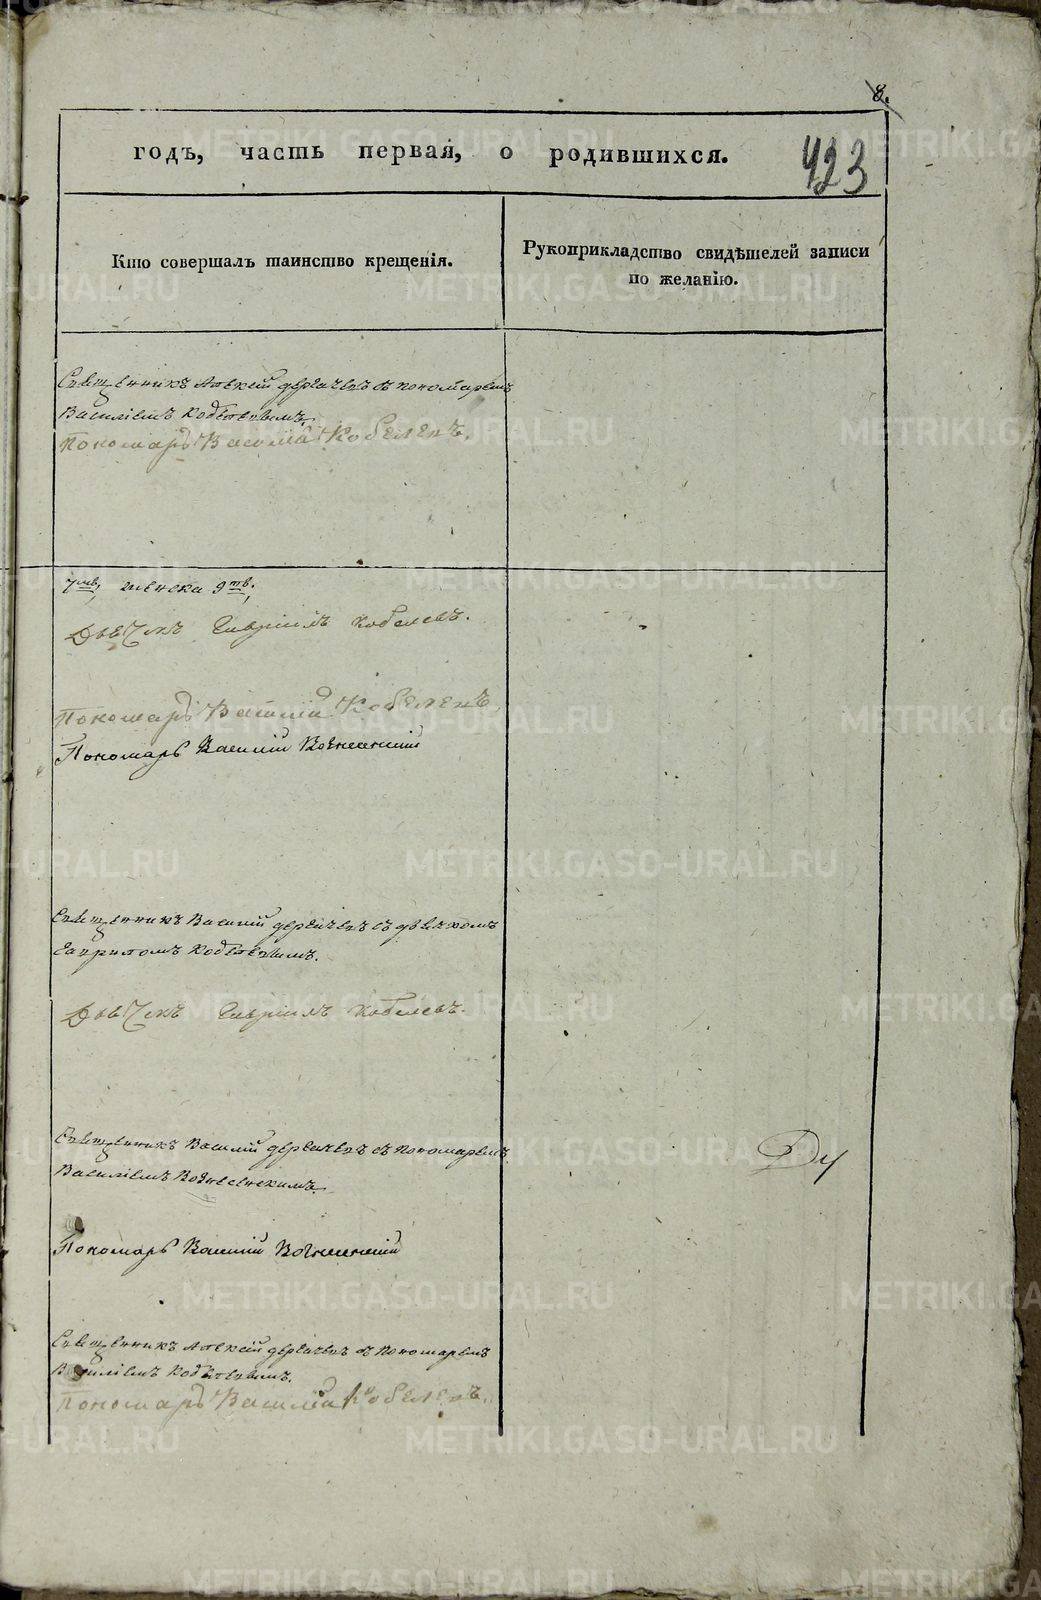 8.
годъ, часть первая, о родившихся.
423
Кто совершалъ таинство крещенія.
Рукоприкладство свидѣтелей записи
по желанію.
Священникъ Алексій съ пономаремъ
Василіемъ Кобелевымъ.
Пономарь Василій Кобелевъ.
7мв, женска 9тв,
Дьячекъ Гавріилъ Кобелевъ.
Пономарь Василій Кобелевъ.
Пономарь Василій Вознесенскій
Священникъ Василій съ дьячкомъ
Гавриломъ Кобелевымъ.
Дьячекъ Гавріилъ Кобелевъ.
Священникъ Василій съ пономаремъ
Василіемъ Вознесенскимъ.
Пономарь Василій Вознесенскій
Священникъ Алексій съ пономаремъ
Василіемъ Кобелевымъ.
Пономарь Василій Кобелевъ.
METRIKI.GASO-URAL.RU